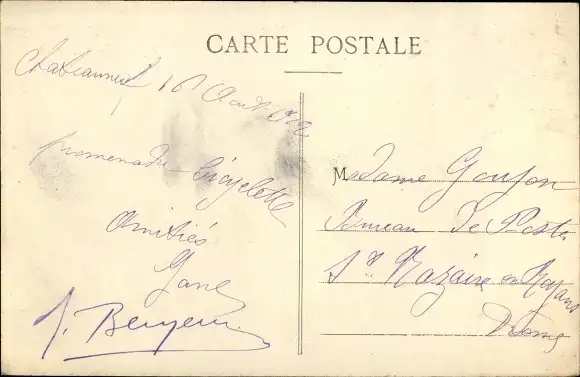 CARTE POSTALE
Chateauneuf 16 Aout 1912
promenade bicyclette
Amitiés
Jane
J. Benyeur
Madame Goujon
Bureau de Poste
St Nazaire en Royans
Drome